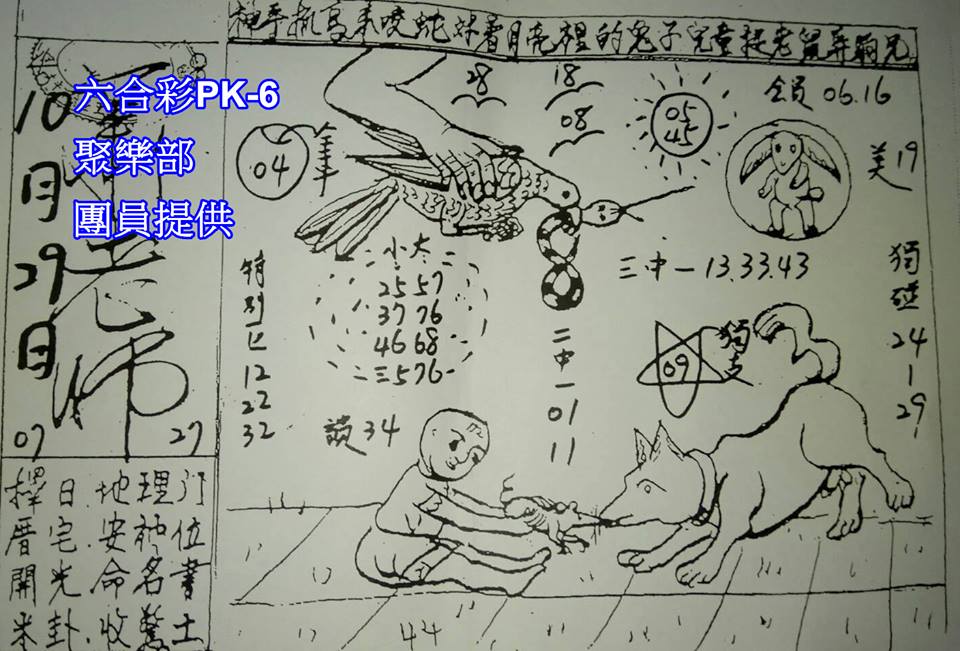 神手抓鳥來咬蛇妹看月亮裡的兔子兒童捉老鼠弄狗兄
六合彩PK-6
聚樂部
團員提供
10月29日
老师
07 27
擇日.地理
厝宅.安神位
開光.命名書
米卦.收驚
04 羊
28
18
08
05
45
全員 06.16
美19
小大
25 57
37 76
46 68
二三576
特別
12
22
32
34
二中一
01
11
三中一13.33.43
獨支
09
獨碰
24
29
44